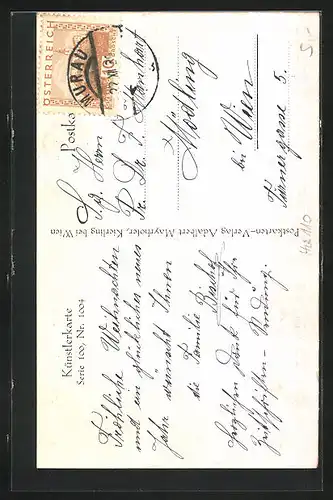 Künstlerkarte
Serie 100, Nr. 1004
Fröhliche Weihnachten
und ein glückliches neues
Jahr wünscht Ihnen
die Familie
Herzlichen Dank und für
Zeitschriften-Sendung.
Postkarten-Verlag Adalbert Mayrhofer, Kierling bei Wien
Postka
ÖSTERREICH
MURAU
Sg. Herrn
Mödling
bei Wien
gasse 5.
5.-